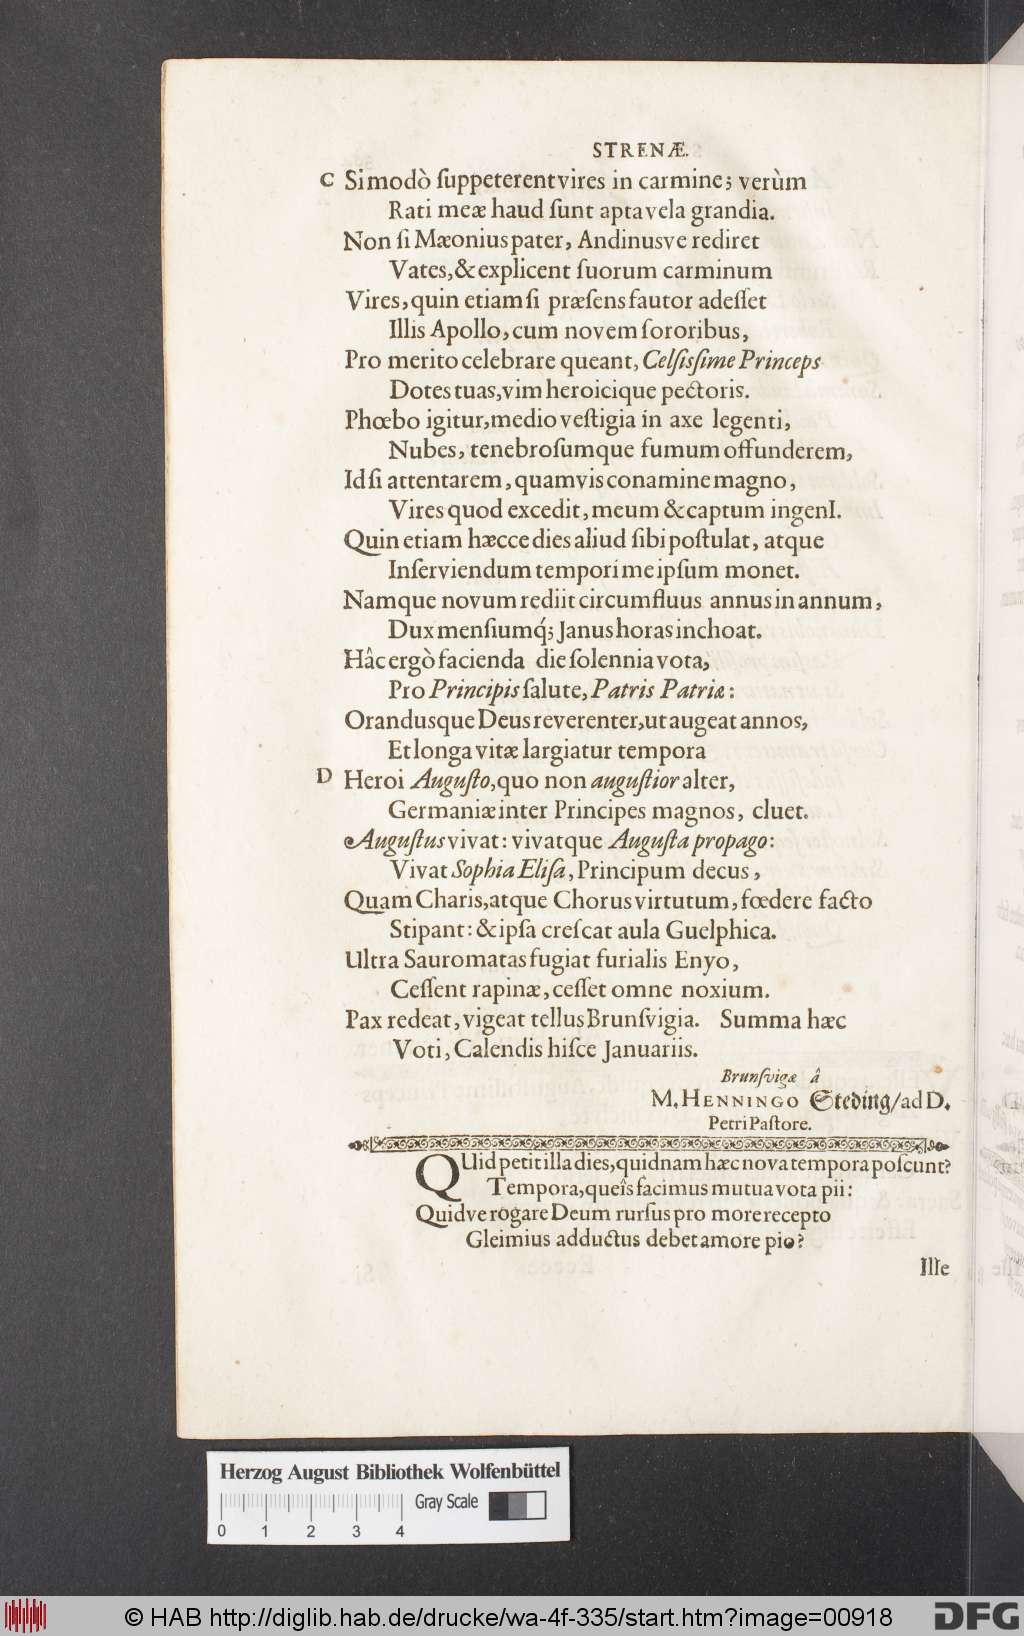 STRENÆ.
C Si modò ſuppeterent vires in carmine; verùm
Rati meæ haud ſunt apta vela grandia.
Non ſi Mæonius pater, Andinusve rediret
Vates, & explicent ſuorum carminum
Vires, quin etiam ſi præſens fautor adeſſet
Illis Apollo, cum novem ſororibus,
Pro merito celebrare queant, Celſisſime Princeps
Dotes tuas, vim heroicique pectoris.
Phœbo igitur, medio veſtigia in axe legenti,
Nubes, tenebroſumque fumum offunderem,
Id ſi attentarem, quamvis conamine magno,
Vires quod excedit, meum & captum ingenI.
Quin etiam hæcce dies aliud ſibi poſtulat, atque
Inſerviendum tempori me ipſum monet.
Namque novum rediit circumfluus annus in annum,
Dux menſiumq́; Janus horas inchoat.
Hâc ergò facienda die ſolennia vota,
Pro Principis ſalute, Patris Patriæ:
Orandusque Deus reverenter, ut augeat annos,
Et longa vitæ largiatur tempora
D Heroi Auguſto, quo non auguſtior alter,
Germaniæ inter Principes magnos, cluet.
Auguſtus vivat: vivatque Auguſta propago:
Vivat Sophia Eliſa, Principum decus,
Quam Charis, atque Chorus virtutum, fœdere facto
Stipant: & ipſa creſcat aula Guelphica.
Ultra Sauromatas fugiat furialis Enyo,
Ceſſent rapinæ, ceſſet omne noxium.
Pax redeat, vigeat tellus Brunſvigia. Summa hæc
Voti, Calendis hiſce Januariis.
Brunſvigæ â
M. HENNINGO Steding/ ad D.
Petri Paſtore.
QUid petit illa dies, quidnam hæc nova tempora poſcunt?
Tempora, queîs facimus mutua vota pii:
Quidve rogare Deum rurſus pro more recepto
Gleimius adductus debet amore pio?
Ille
Herzog August Bibliothek Wolfenbüttel
Gray Scale
0 1 2 3 4
© HAB http://diglib.hab.de/drucke/wa-4f-335/start.htm?image=00918
DFG